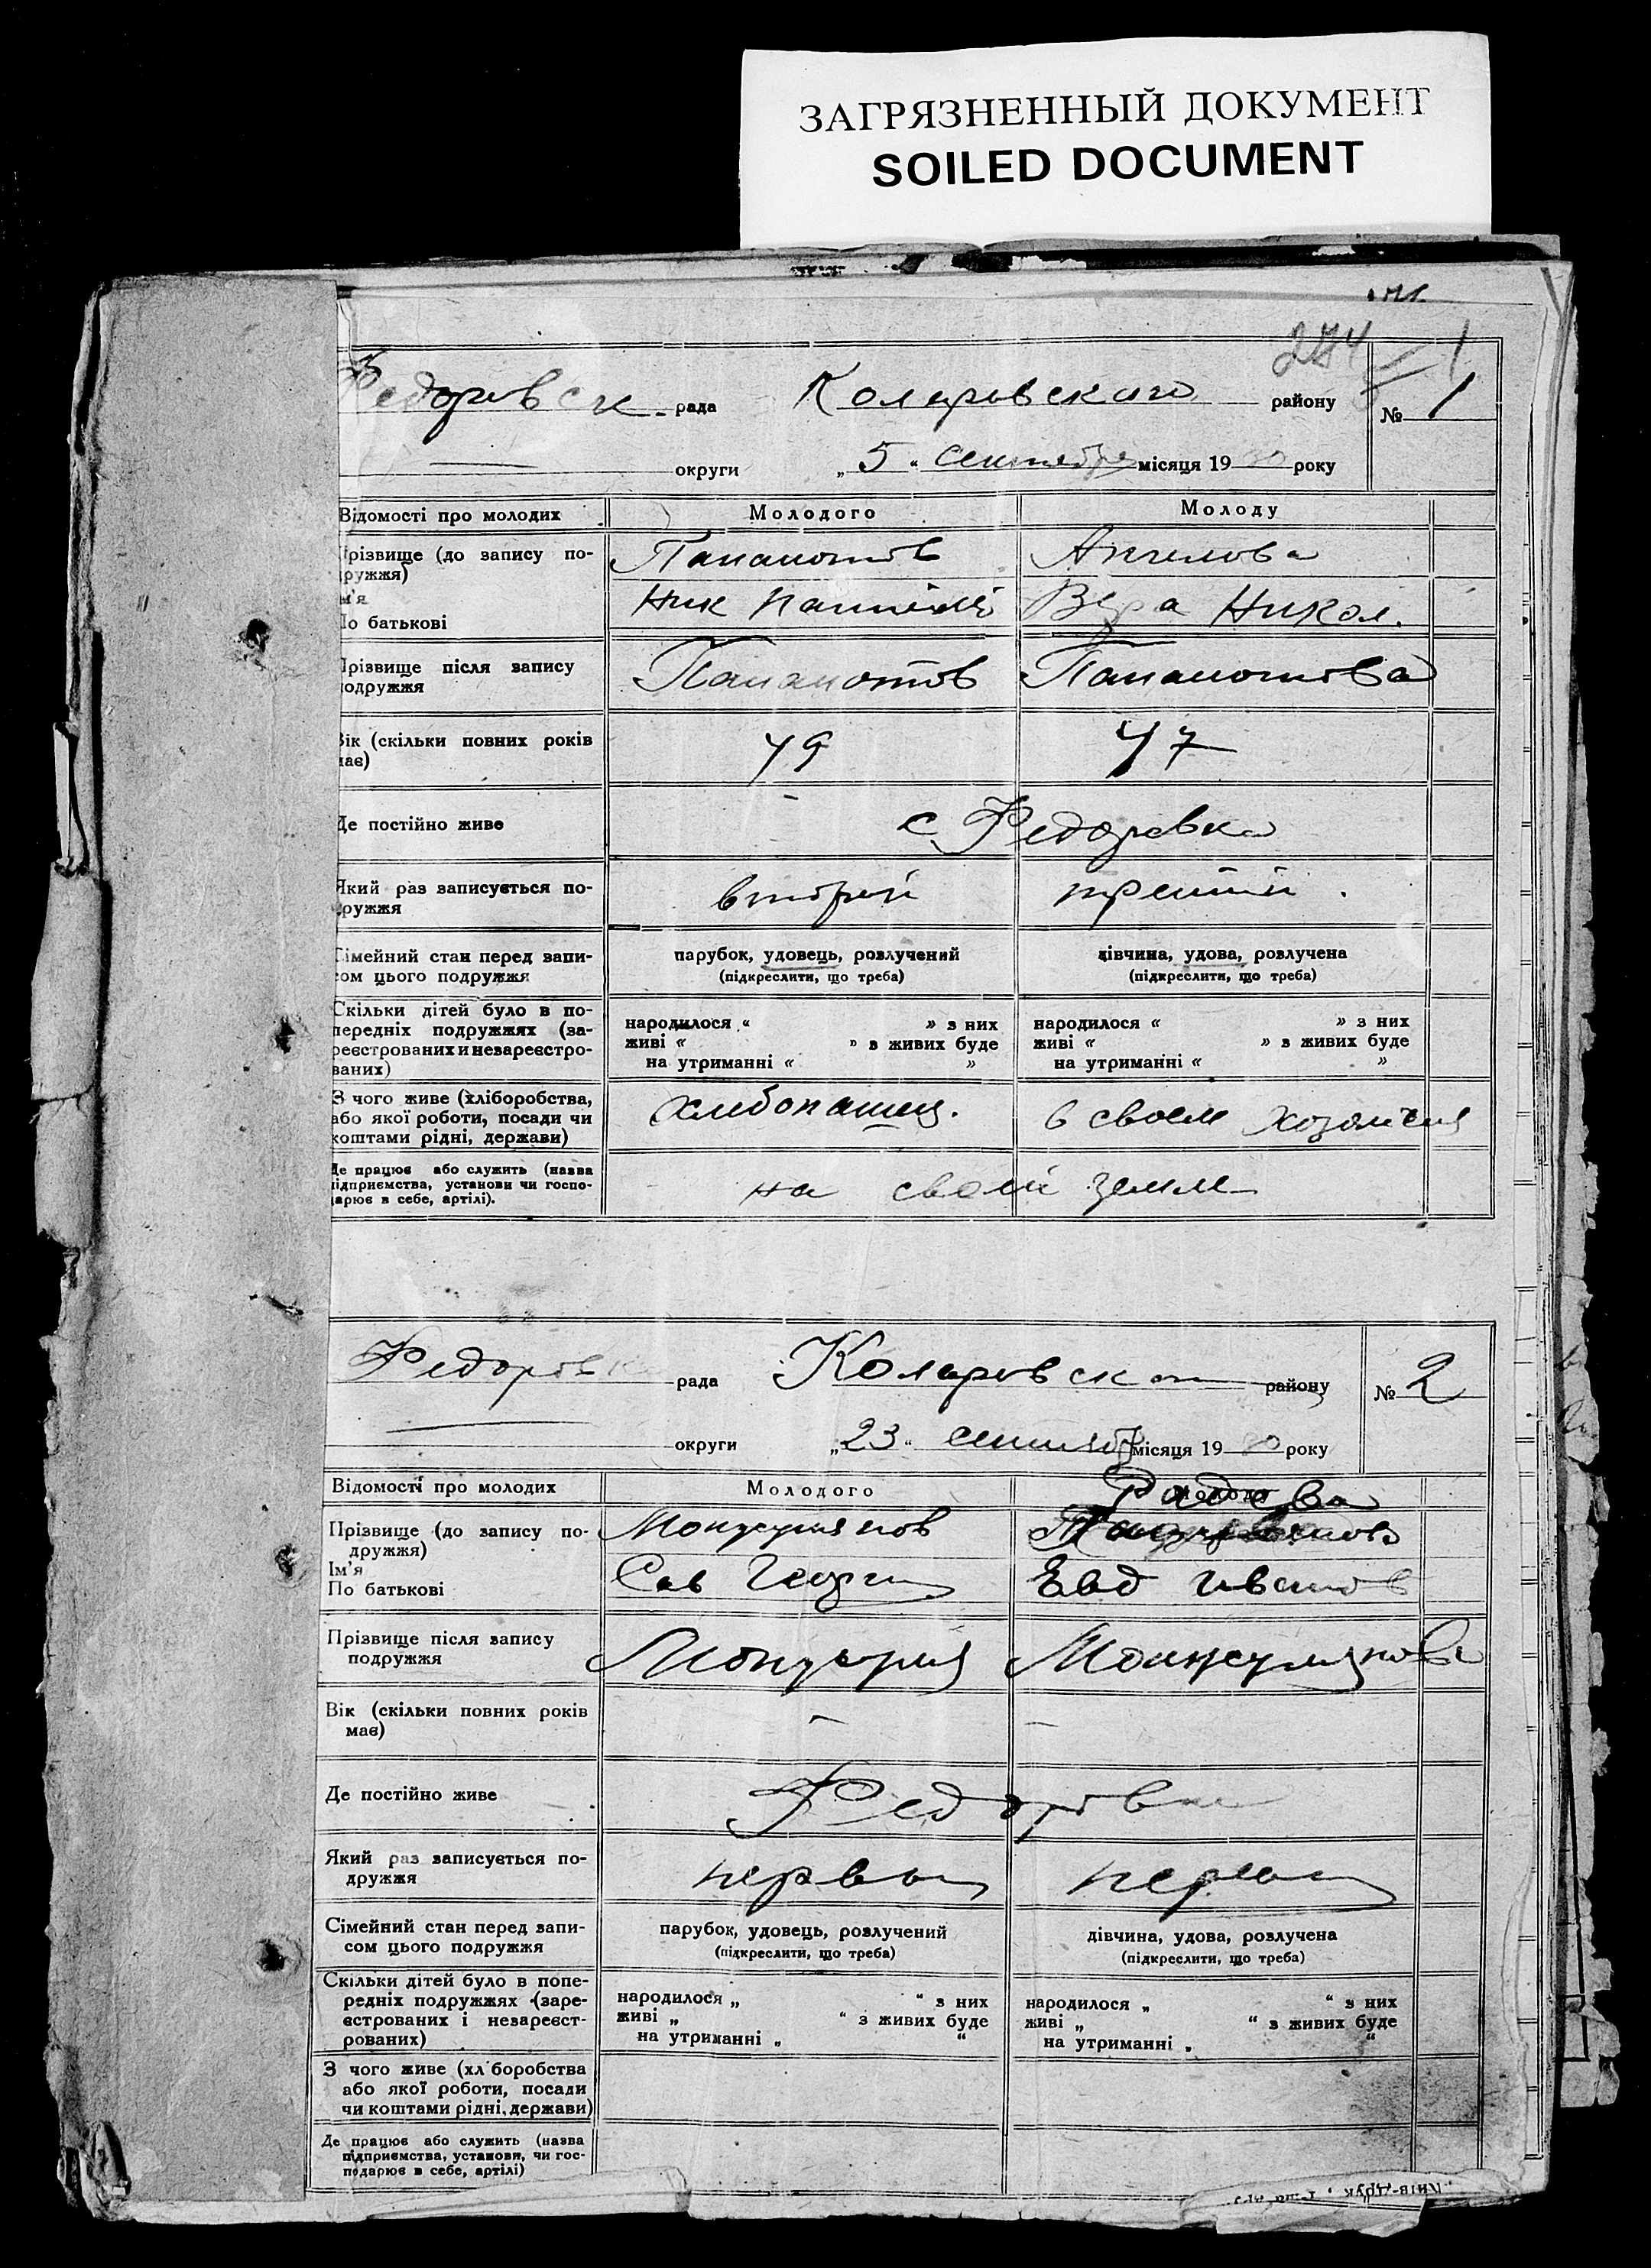 ЗАГРЯЗНЕННЫЙ ДОКУМЕНТ
SOILED DOCUMENT
274
1
Федоровск. рада Коларовского району № 1
округи „5“ сентября місяця 1930 року
Відомості про молодих Молодого Молоду
Прізвище (до запису по-
дружжя)
Ім'я
По батькові
Ангелова
Ник Вера Никол.
Прізвище після запису
подружжя
Вік (скільки повних років
має)
49 47
Де постійно живе с. Федоровка
Який раз записується по-
дружжя
второй третий
Сімейний стан перед запи-
сом цього подружжя
парубок, удовець, розлучений дівчина, удова, розлучена
(підкреслити, що треба) (підкреслити, що треба)
Скільки дітей було в по-
передніх подружжях (за-
реєстрованих и незареєстро-
ваних)
народилося „ » з них народилося « » з них
живі « » в живих буде живі « » в живих буде
на утриманні « » на утриманні « »
З чого живе (хліборобства,
або якої роботи, посади чи
коштами рідні, держави)
хлебопашец. в своем
Де працює або служить (назва
підприємства, установи чи госпо-
дарює в себе, артілі).
на своей земле
Федоровк рада Коларовск району № 2
округи „23“ сентябр місяця 1930 року
Відомості про молодих Молодого
Радева
Прізвище (до запису по-
дружжя)
Ім'я
По батькові
Сав Георги Евд Иванов
Прізвище після запису
подружжя
Вік (скільки повних років
має)
– –
Де постійно живе Федоровка
Який раз записується по-
дружжя
первый первый
Сімейний стан перед запи-
сом цього подружжя
парубок, удовець, розлучений дівчина, удова, розлучена
(підкреслити, що треба) (підкреслити, що треба)
Скільки дітей було в попе-
редніх подружжях (заре-
єстрованих і незареєст-
рованих)
народилося „ “ з них народилося „ “ з них
живі „ “ з живих буде живі „ “ з живих буде
на утриманні „ “ на утриманні „ “
З чого живе (хліборобства
або якої роботи, посади
чи коштами рідні, держави)
Де працює або служить (назва
підприємства, установи, чи гос-
подарює в себе, артілі)